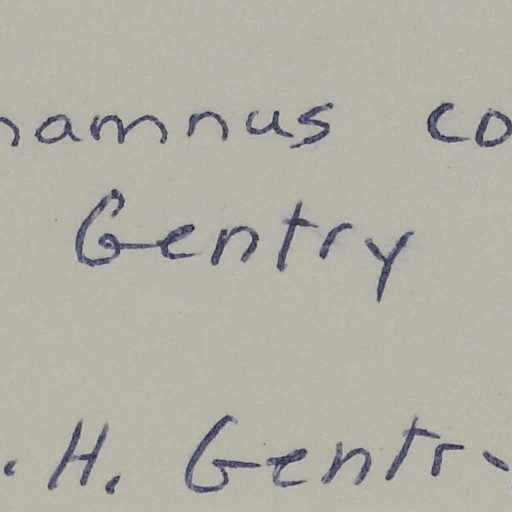 hamnus co
Gentry
. H. Gentr